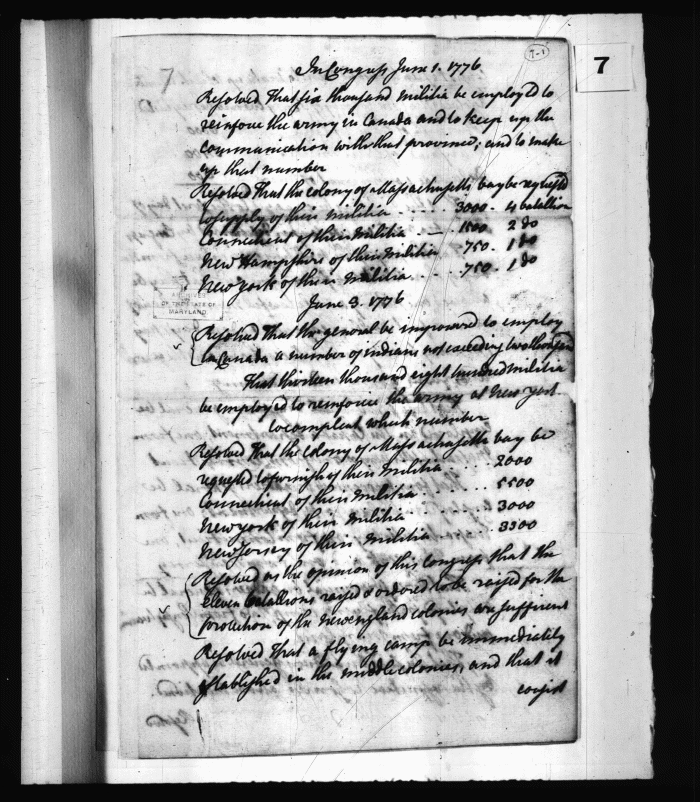 7-1
7
7
In Congress June 1. 1776
Resolved That six thousand militia be employed to
reinforce the army in Canada and to keep up the
communication with that province; and to make
up that number
Resolved That the colony of Massachusetts bay be requested
to supply of their militia .... 3000. 4 batallion
Connecticut of their militia .. — 1500 2 do
New Hampshire of their militia 750. 1 do
New York of their militia .... 750. 1 do
ARCHIVES
OF THE STATE OF
MARYLAND
June 3. 1776
Resolved That the general be impowered to employ
in Canada a number of indians not exceeding two thousand
That thirteen thousand eight hundred militia
be employed to reinforce the army at New York
to compleat which number
Resolved That the colony of Massachusetts bay be
requested to furnish of their militia .... 2000
Connecticut of their militia ...... 5500
New york of their militia ...... 3000
New Jersey of their militia .... 3300
Resolved as the opinion of this congress that the
eleven batallions raised & ordered to be raised for the
protection of the new england colonies are sufficient
Resolved That a flying camp be immediately
established in the middle colonies, and that it
consist